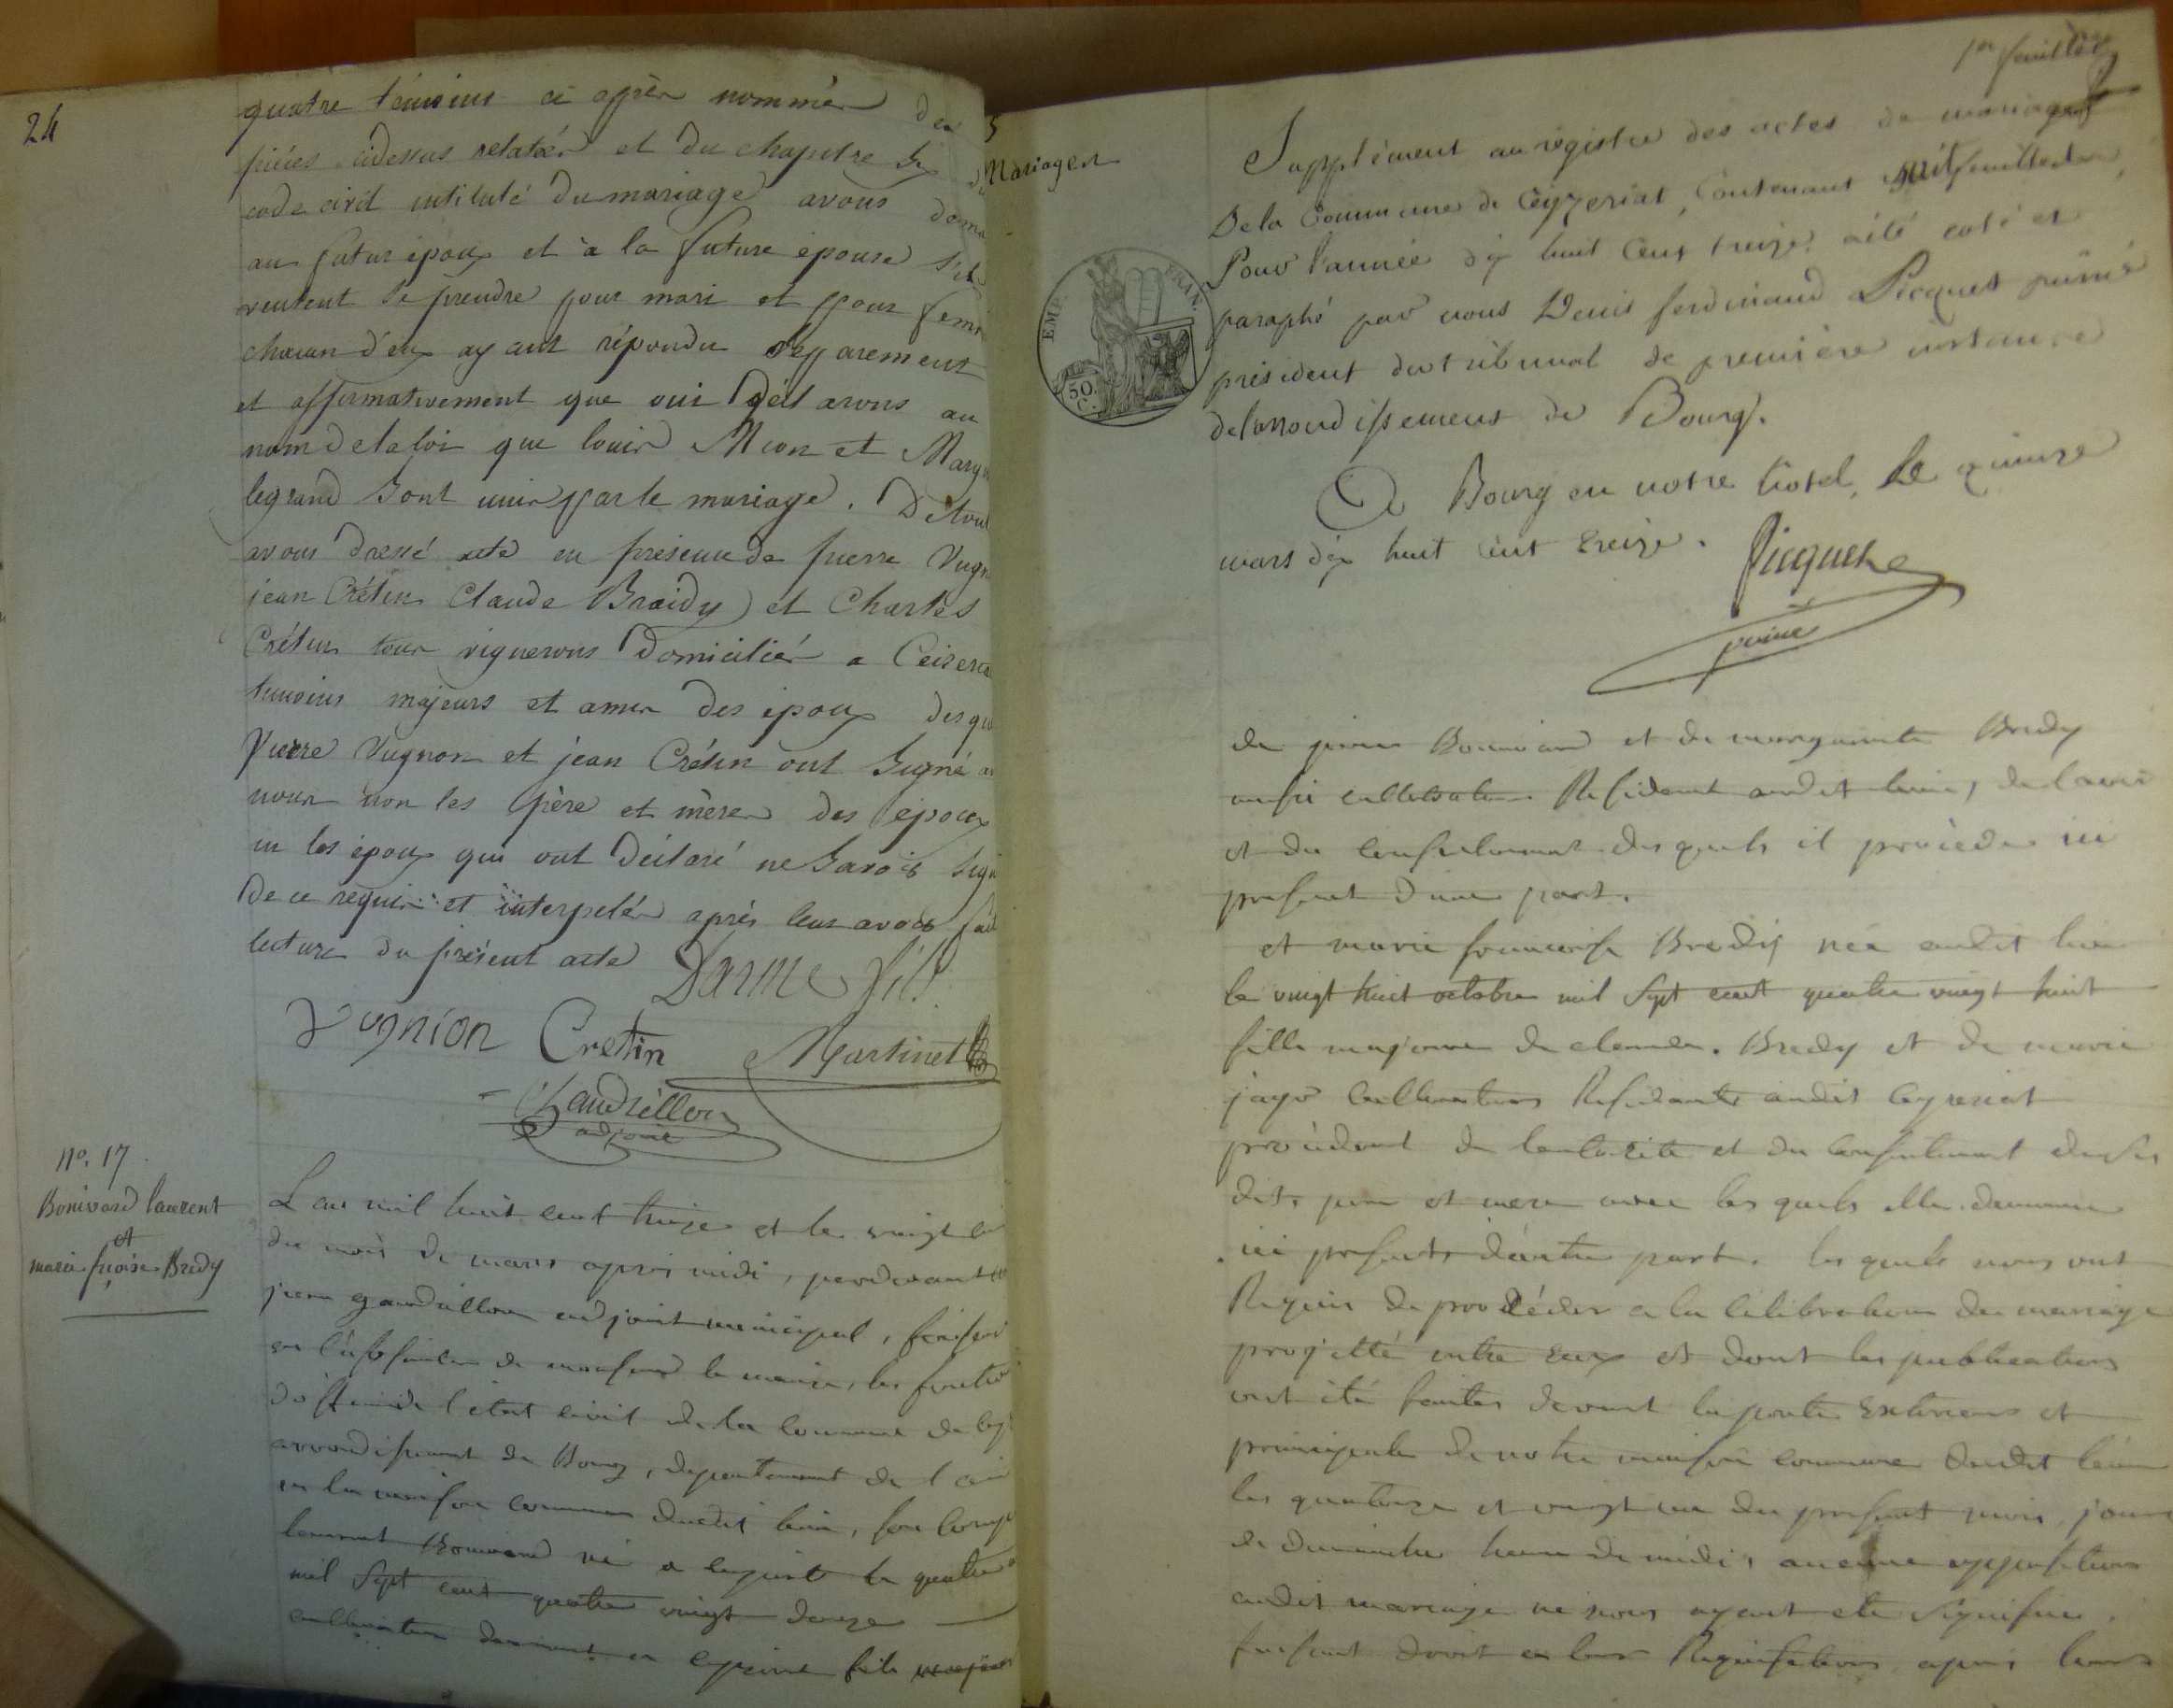 24
quatre témoins ci après nommés des
pièces cidessus relatées et du chapitre six du
code civil intitulé du mariage avons dema
au futur époux et à la future épouse s'ils
veulent se prendre pour mari et pour fem
chacun d'eux ayant répondu séparement
et affirmativement que oui déclarons au
nom de la loi que louis Mion et Marg
legrand sont unis par le mariage. De tout
avons dressé acte en présence de pierre Vugn
jean Crétin Claude Braidy et Charles
Crétin tous vignerons domiciliés a Ceizeria
témoins majeurs et amis des époux desqu
Pierre Vugnon et jean Crétin ont signé a
nous non les père et mères des époux
ni les époux qui ont déclaré ne savoir sign
de ce requis et interpelés après leur avoir fait
lecture du présent acte Darme fils
Vugnion Cretin Martinet
Gaudrillon
adjoint
No. 17
Bonivard laurent
et
marie fçoise Bredy
L'an mil huit cent treize et le vingt
du mois de mars après midi, pardevant
jean gaudrillon adjoint municipal, faisant
en l'absence de monsieur le maire, les fonctio
d'officier de l'état civil de la commune de cey
arrondissement de Bourg, departement de l'ain
en la maison commune dudit lieu,
laurent Bonivard né a le quatre
mil sept cent quatre vingt douze
cultivateur demeurant a fils
5
Mariages
1er feuillet
Supplément au régistre des actes de mariages
De la Commune de Ceyzeriat, Contenant huit feuillets
Pour l'année dix huit cent treize, a été coté et
paraphé par nous Denis ferdinand Picquet puiné
président du tribunal de première instance
de l'arrondissement de Bourg.
A Bourg en notre hotel, le quinze
mars dix huit cent treize. Picquet
puiné
EMP. FRAN.
50.
C.
de pierre Bonivard et de marguerite Bredy
aussi cultivateurs Residant audit lieu, de l'avis
et du consentement desquels il procède ici
present d'une part.
et marie francoise Bredy née audit lieu
le vingt huit octobre mil sept cent quatre vingt huit
fille majeure de claude Bredy et de marie
jayr cultivateurs Residants audit Ceyzeriat
procédant de l'autorité et du consentement de ses
dits père et mere avec les quels elle demeure
ici présents d'autre part. les quels nous ont
Requis de procéder a la célébration du mariage
projetté entre eux et dont les publications
ont été faites devant la porte Extérieure et
principale de notre maison commune dudit lieu
les quatorze et vingt un du present mois, jour
de dimanche heure de midi, aucune opposition
audit mariage ne nous ayant eté signifiée,
faisant droit a leur Requisition, après leur